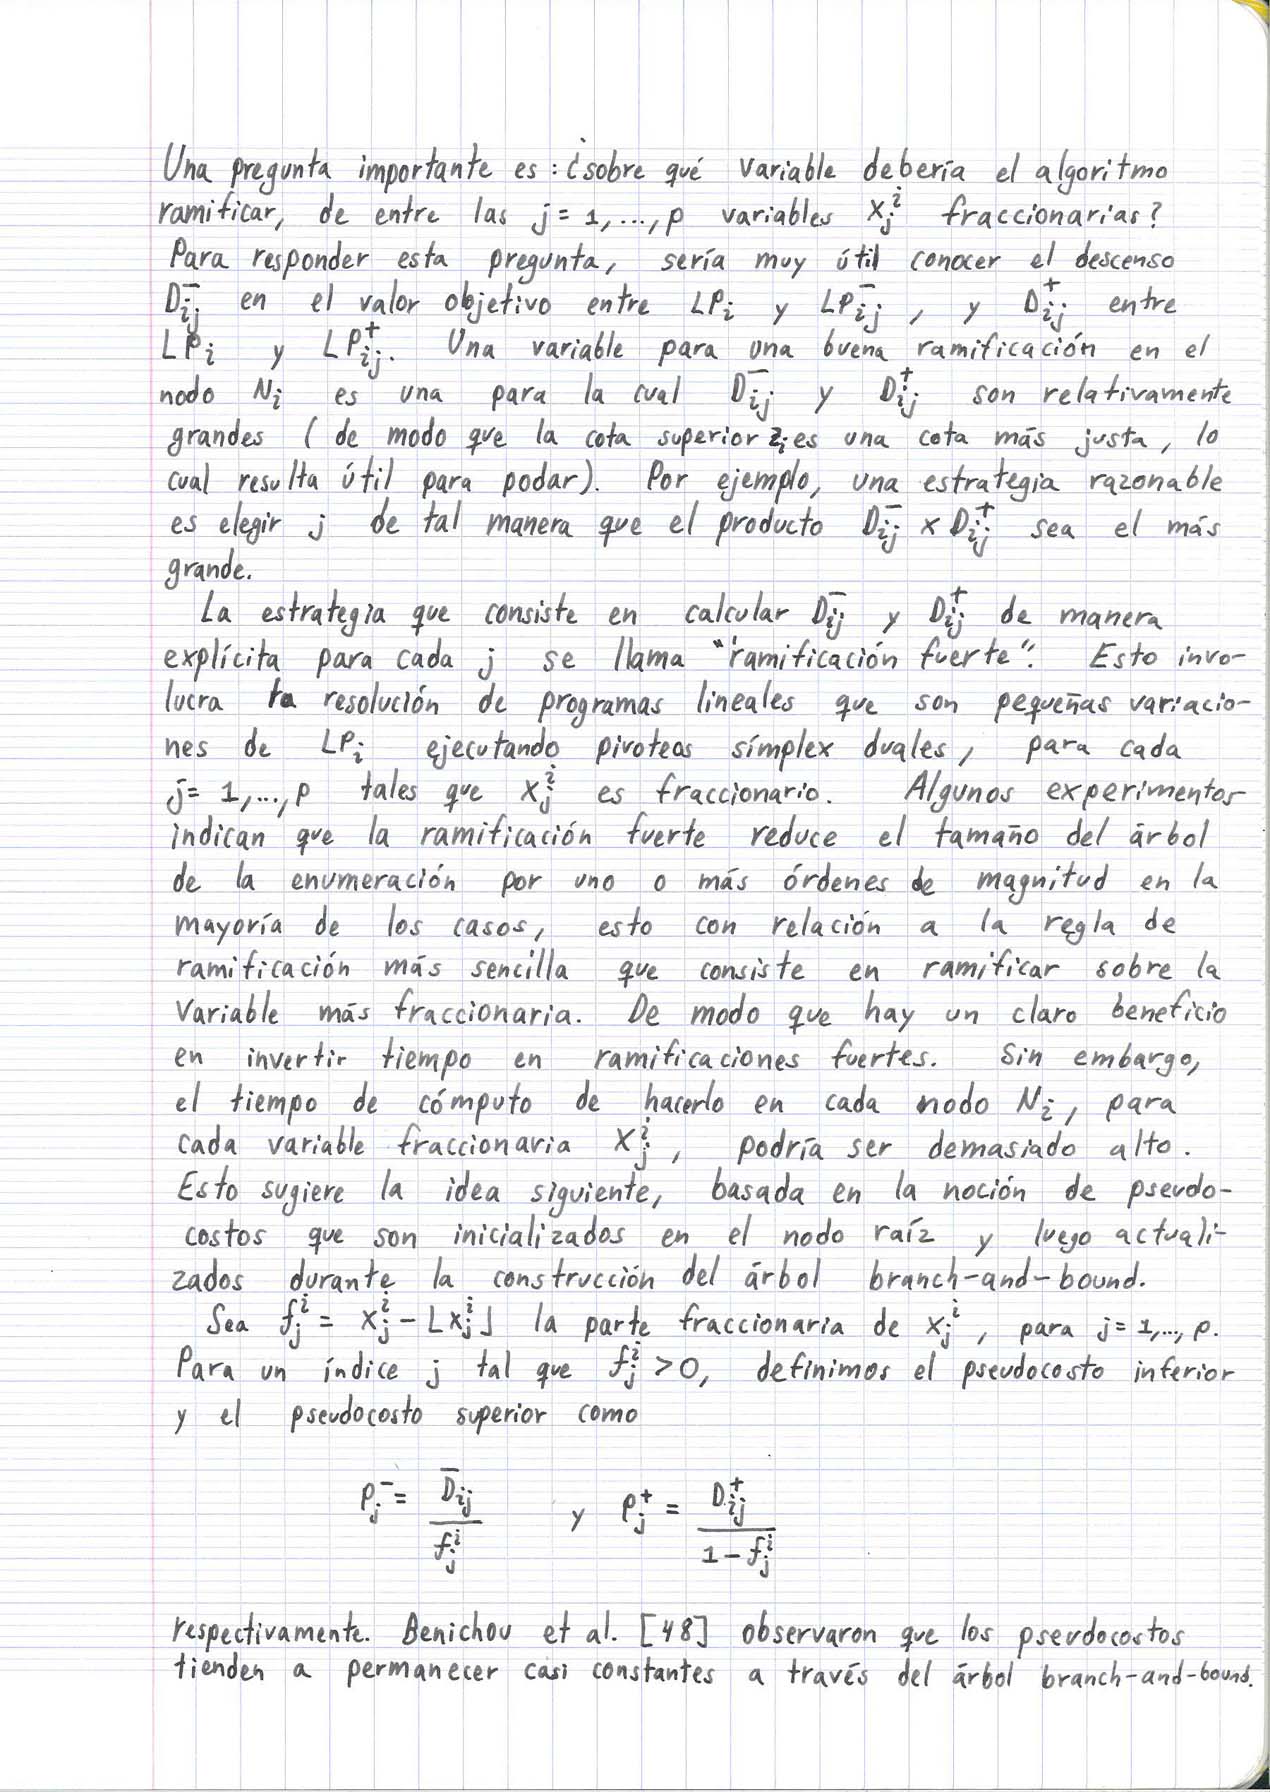 Una pregunta importante es: ¿sobre qué variable debería el algoritmo
ramificar, de entre las j = 1, ..., p variables x_j^i fraccionarias?
Para responder esta pregunta, sería muy útil conocer el descenso
D_{ij}^- en el valor objetivo entre LP_i y LP_{ij}^-, y D_{ij}^+ entre
LP_i y LP_{ij}^+. Una variable para una buena ramificación en el
nodo N_i es una para la cual D_{ij}^- y D_{ij}^+ son relativamente
grandes (de modo que la cota superior z_i es una cota más justa, lo
cual resulta útil para podar). Por ejemplo, una estrategia razonable
es elegir j de tal manera que el producto D_{ij}^- × D_{ij}^+ sea el más
grande.
La estrategia que consiste en calcular D_{ij}^- y D_{ij}^+ de manera
explícita para cada j se llama "ramificación fuerte". Esto invo-
lucra la resolución de programas lineales que son pequeñas variacio-
nes de LP_i ejecutando pivoteos símplex duales, para cada
j = 1, ..., p tales que x_j^i es fraccionario. Algunos experimentos
indican que la ramificación fuerte reduce el tamaño del árbol
de la enumeración por uno o más órdenes de magnitud en la
mayoría de los casos, esto con relación a la regla de
ramificación más sencilla que consiste en ramificar sobre la
variable más fraccionaria. De modo que hay un claro beneficio
en invertir tiempo en ramificaciones fuertes. Sin embargo,
el tiempo de cómputo de hacerlo en cada nodo N_i, para
cada variable fraccionaria x_j^i, podría ser demasiado alto.
Esto sugiere la idea siguiente, basada en la noción de pseudo-
costos que son inicializados en el nodo raíz y luego actuali-
zados durante la construcción del árbol branch-and-bound.
Sea f_j^i = x_j^i - ⌊x_j^i⌋ la parte fraccionaria de x_j^i, para j = 1, ..., p.
Para un índice j tal que f_j^i > 0, definimos el pseudocosto inferior
y el pseudocosto superior como
P_j^- = D_{ij}^- / f_j^i y P_j^+ = D_{ij}^+ / (1 - f_j^i)
respectivamente. Benichou et al. [48] observaron que los pseudocostos
tienden a permanecer casi constantes a través del árbol branch-and-bound.